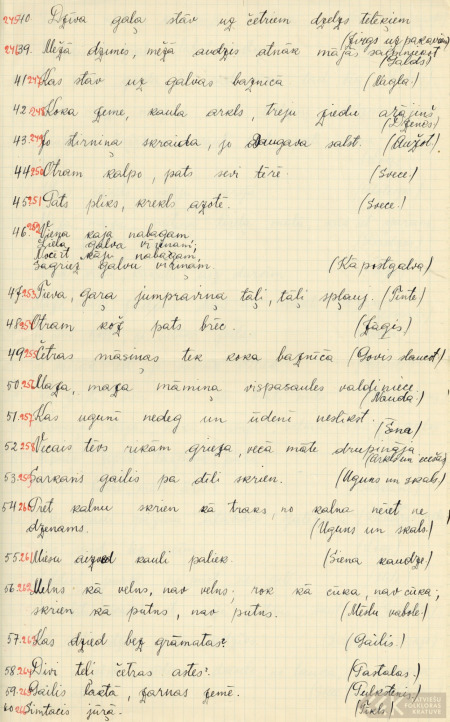 245 40. Dzīva gaļa stāv uz četriem dzelzs teteķiem
(Zirgs uz pakaviem)
246 39. Mežā dzimes, mežā audzes atnāk mājās saimniekot
(Galds)
41. 247 Kas stāv uz galvas baznīcā (Nagla.)
42. 248 Koka zeme, kaula arkls, treju ziedu arājiņš
(Dzenis)
43. 249 Jo stirniņa skraida, jo Daugava salst. (Aužot.)
44. 250 Otram kalpo, pats sevi tērē. (Svece.)
45. 251 Pats pliks, krekls azotē. (Svece.)
46. 252 Viena kāja nabagam,
Liela galva viņam,
Nocirt kāju nabagam,
Sagriez galvu viņam. (Kāpostgalva)
47. 253 Tieva, gara jumpraviņa tāļi, tāļi spļauj. (Plinte)
48. 254 Otram kož pats brēc. (Zāģis)
49. 255 Četras māsiņas tek koka baznīcā (Govis slaucot)
50. 256 Maza, maza māmiņa vispasaules valdiniece.
(Nauda.)
51. 257 Kas ugunī nedeg un ūdenī neslīkst.
(Ēna)
52. 258 Vecais tēvs rikām grieza, vecā māte drupināja
(Arkls un ecēšas)
53. 259 Sarkans gailis pa dīli skrien. (Uguns un skals.)
54. 260 Pret kalnu skrien kā traks, no kalna neiet ne
dzenams. (Uguns un skals.)
55. 261 Miesu aizved kauli paliek. (Siena kaudze)
56. 262 Melns kā velns, nav velns; rok kā cūka, nav cūka;
skrien kā putns, nav putns. (Mēslu vabole)
57. 263 Kas dzied bez grāmatas? (Gailis.)
58. 264 Divi teļi četras astes? (Pastalas.)
59. 265 Gailis laktā, zarnas zemē. (Pulkstenis.)
60. 266 Simtacis jūrā. (Tīkls)
LATVIEŠU
FOLKLORAS
KRĀTUVE